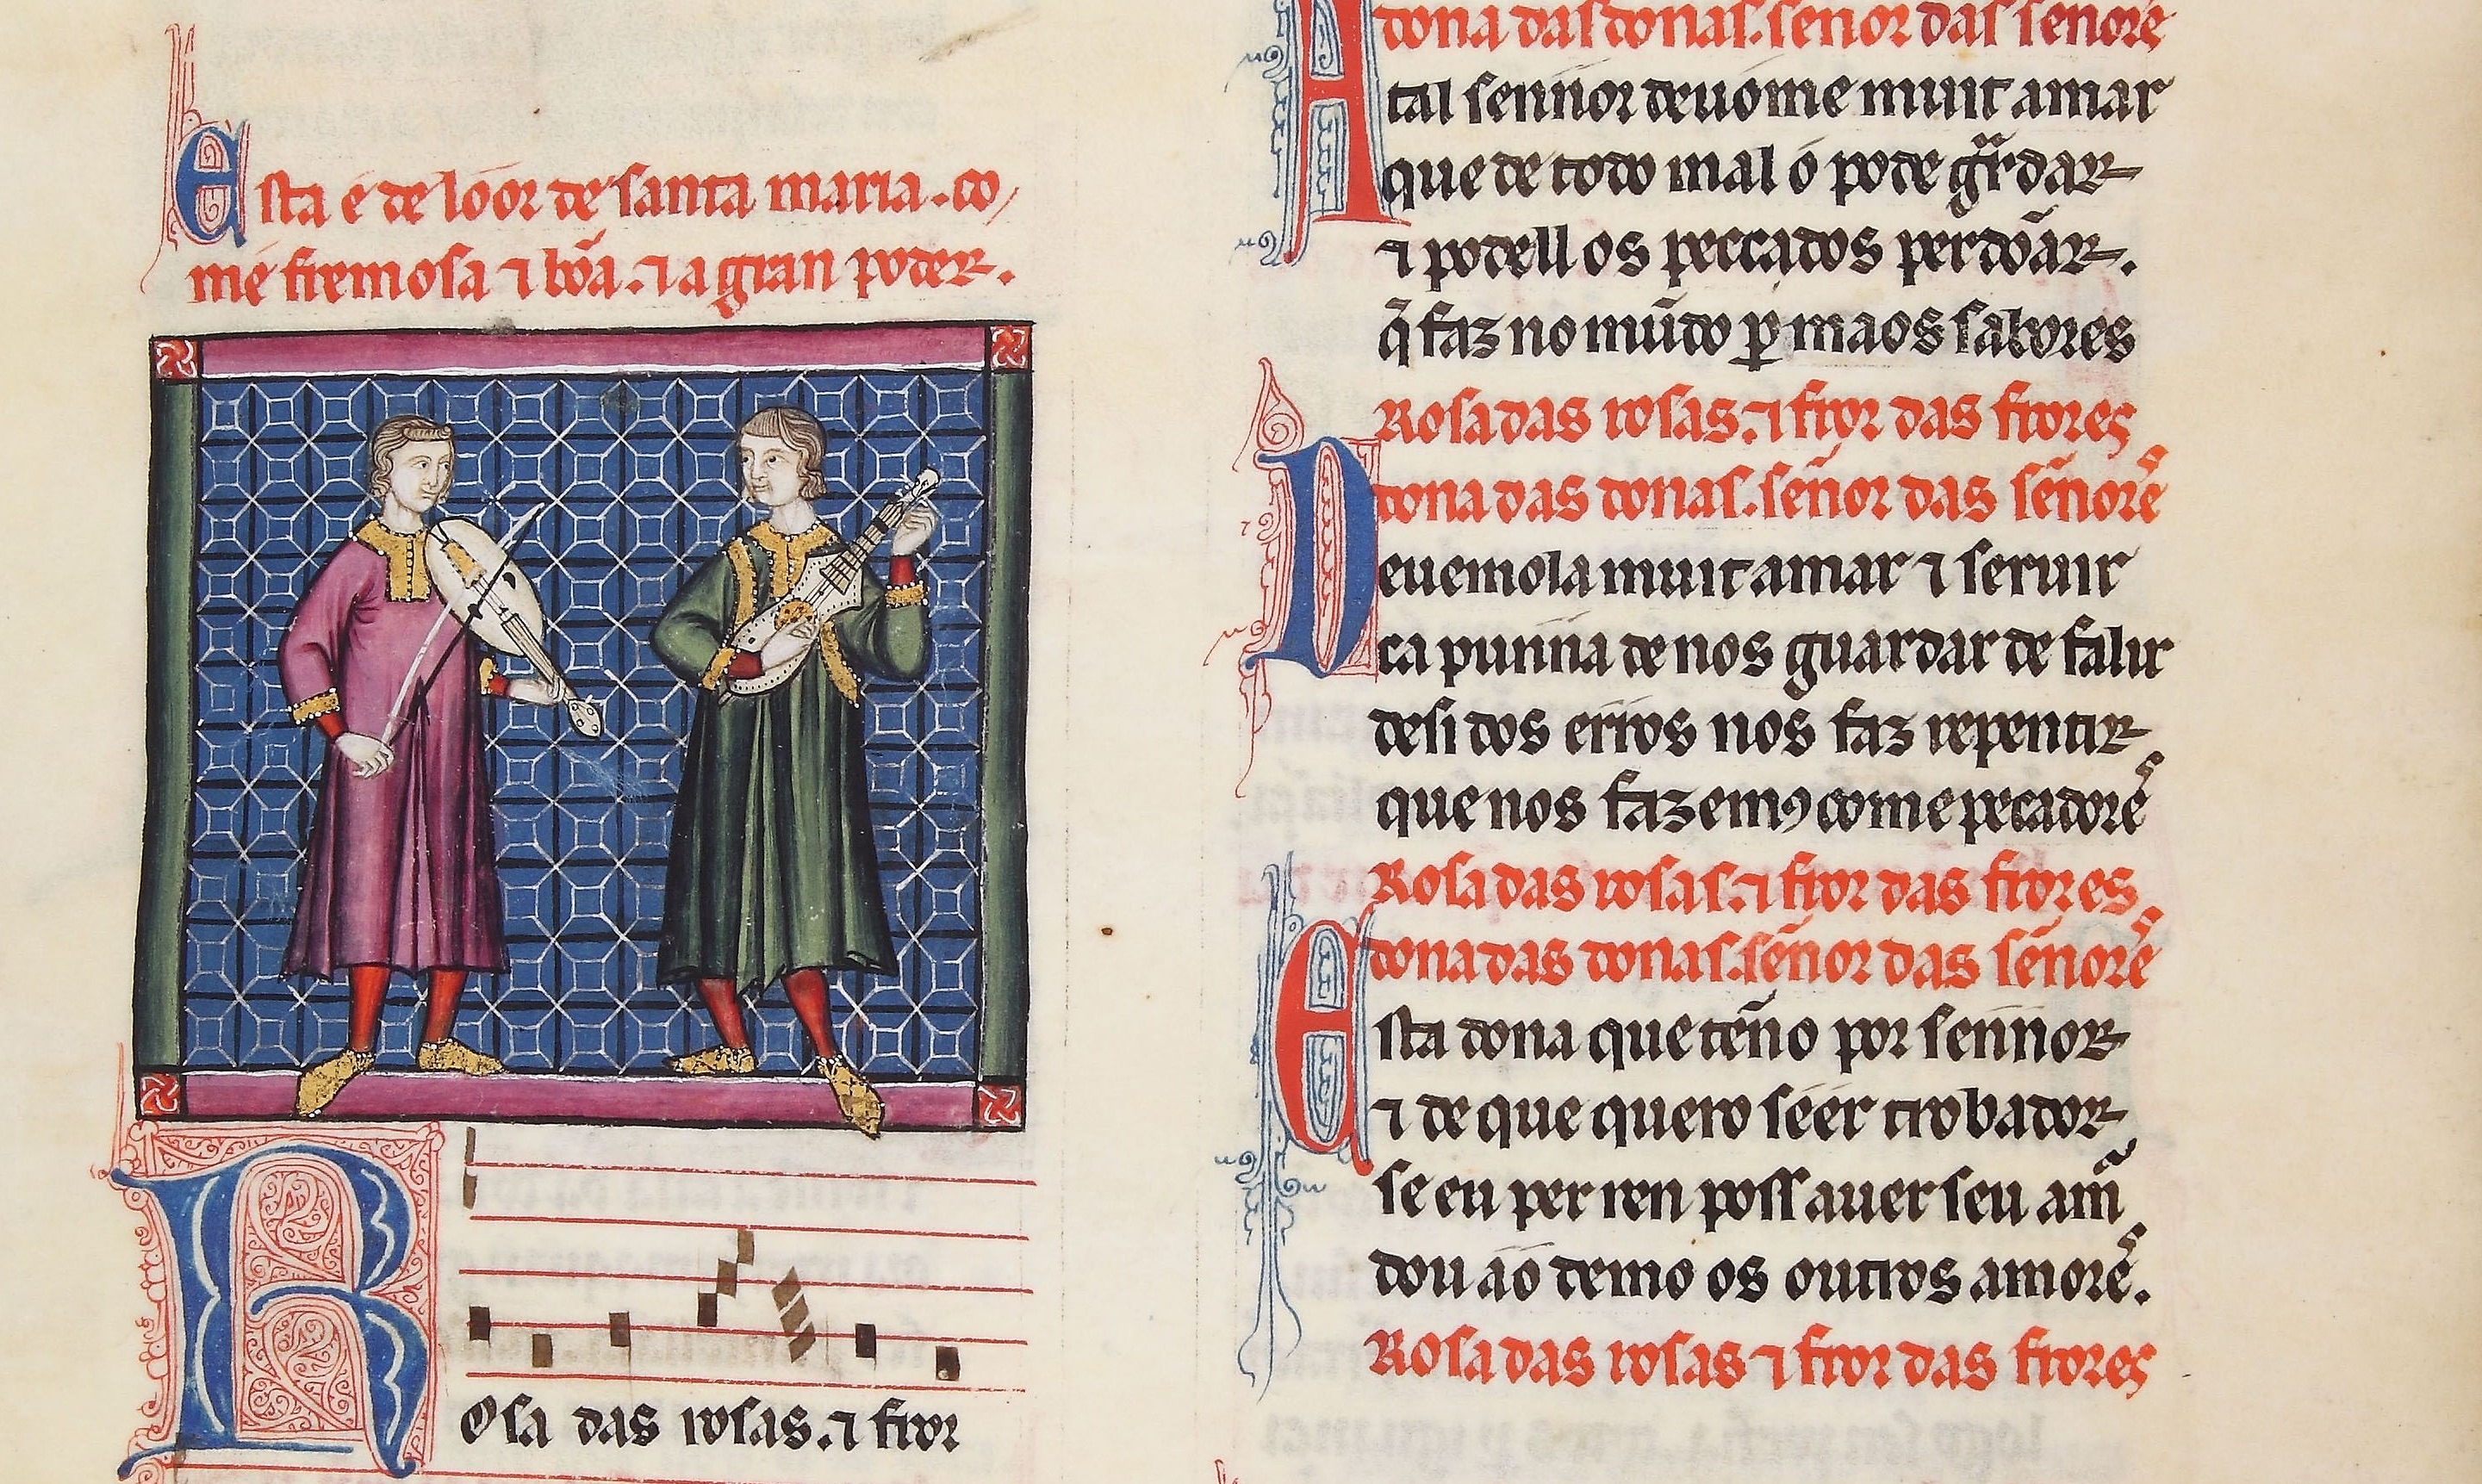 Esta é de loor de santa maria. co
mé fremosa ⁊ bõa. ⁊ a gran poder.
Rosa das rosas. ⁊ fror
dona das donas. señor das señores
A tal sennor deuome muit amar
que de todo mal ó pode gardar
⁊ podell os peccados perdõar.
q̃ faz no mũdo per maos sabores
Rosa das rosas. ⁊ fror das frores
dona das donas. señor das señores
Deuemola muit amar ⁊ seruir
ca punna de nos guardar de falir
desi dos erros nos faz repentir
que nos fazemꝯ come pecadores
Rosa das rosas. ⁊ fror das frores
dona das donas. señor das señores
Esta dona que teño por sennor
⁊ de que quero séér trobador
se eu per ren poss auer seu amor
dou áó demo os outros amores.
Rosa das rosas ⁊ fror das frores